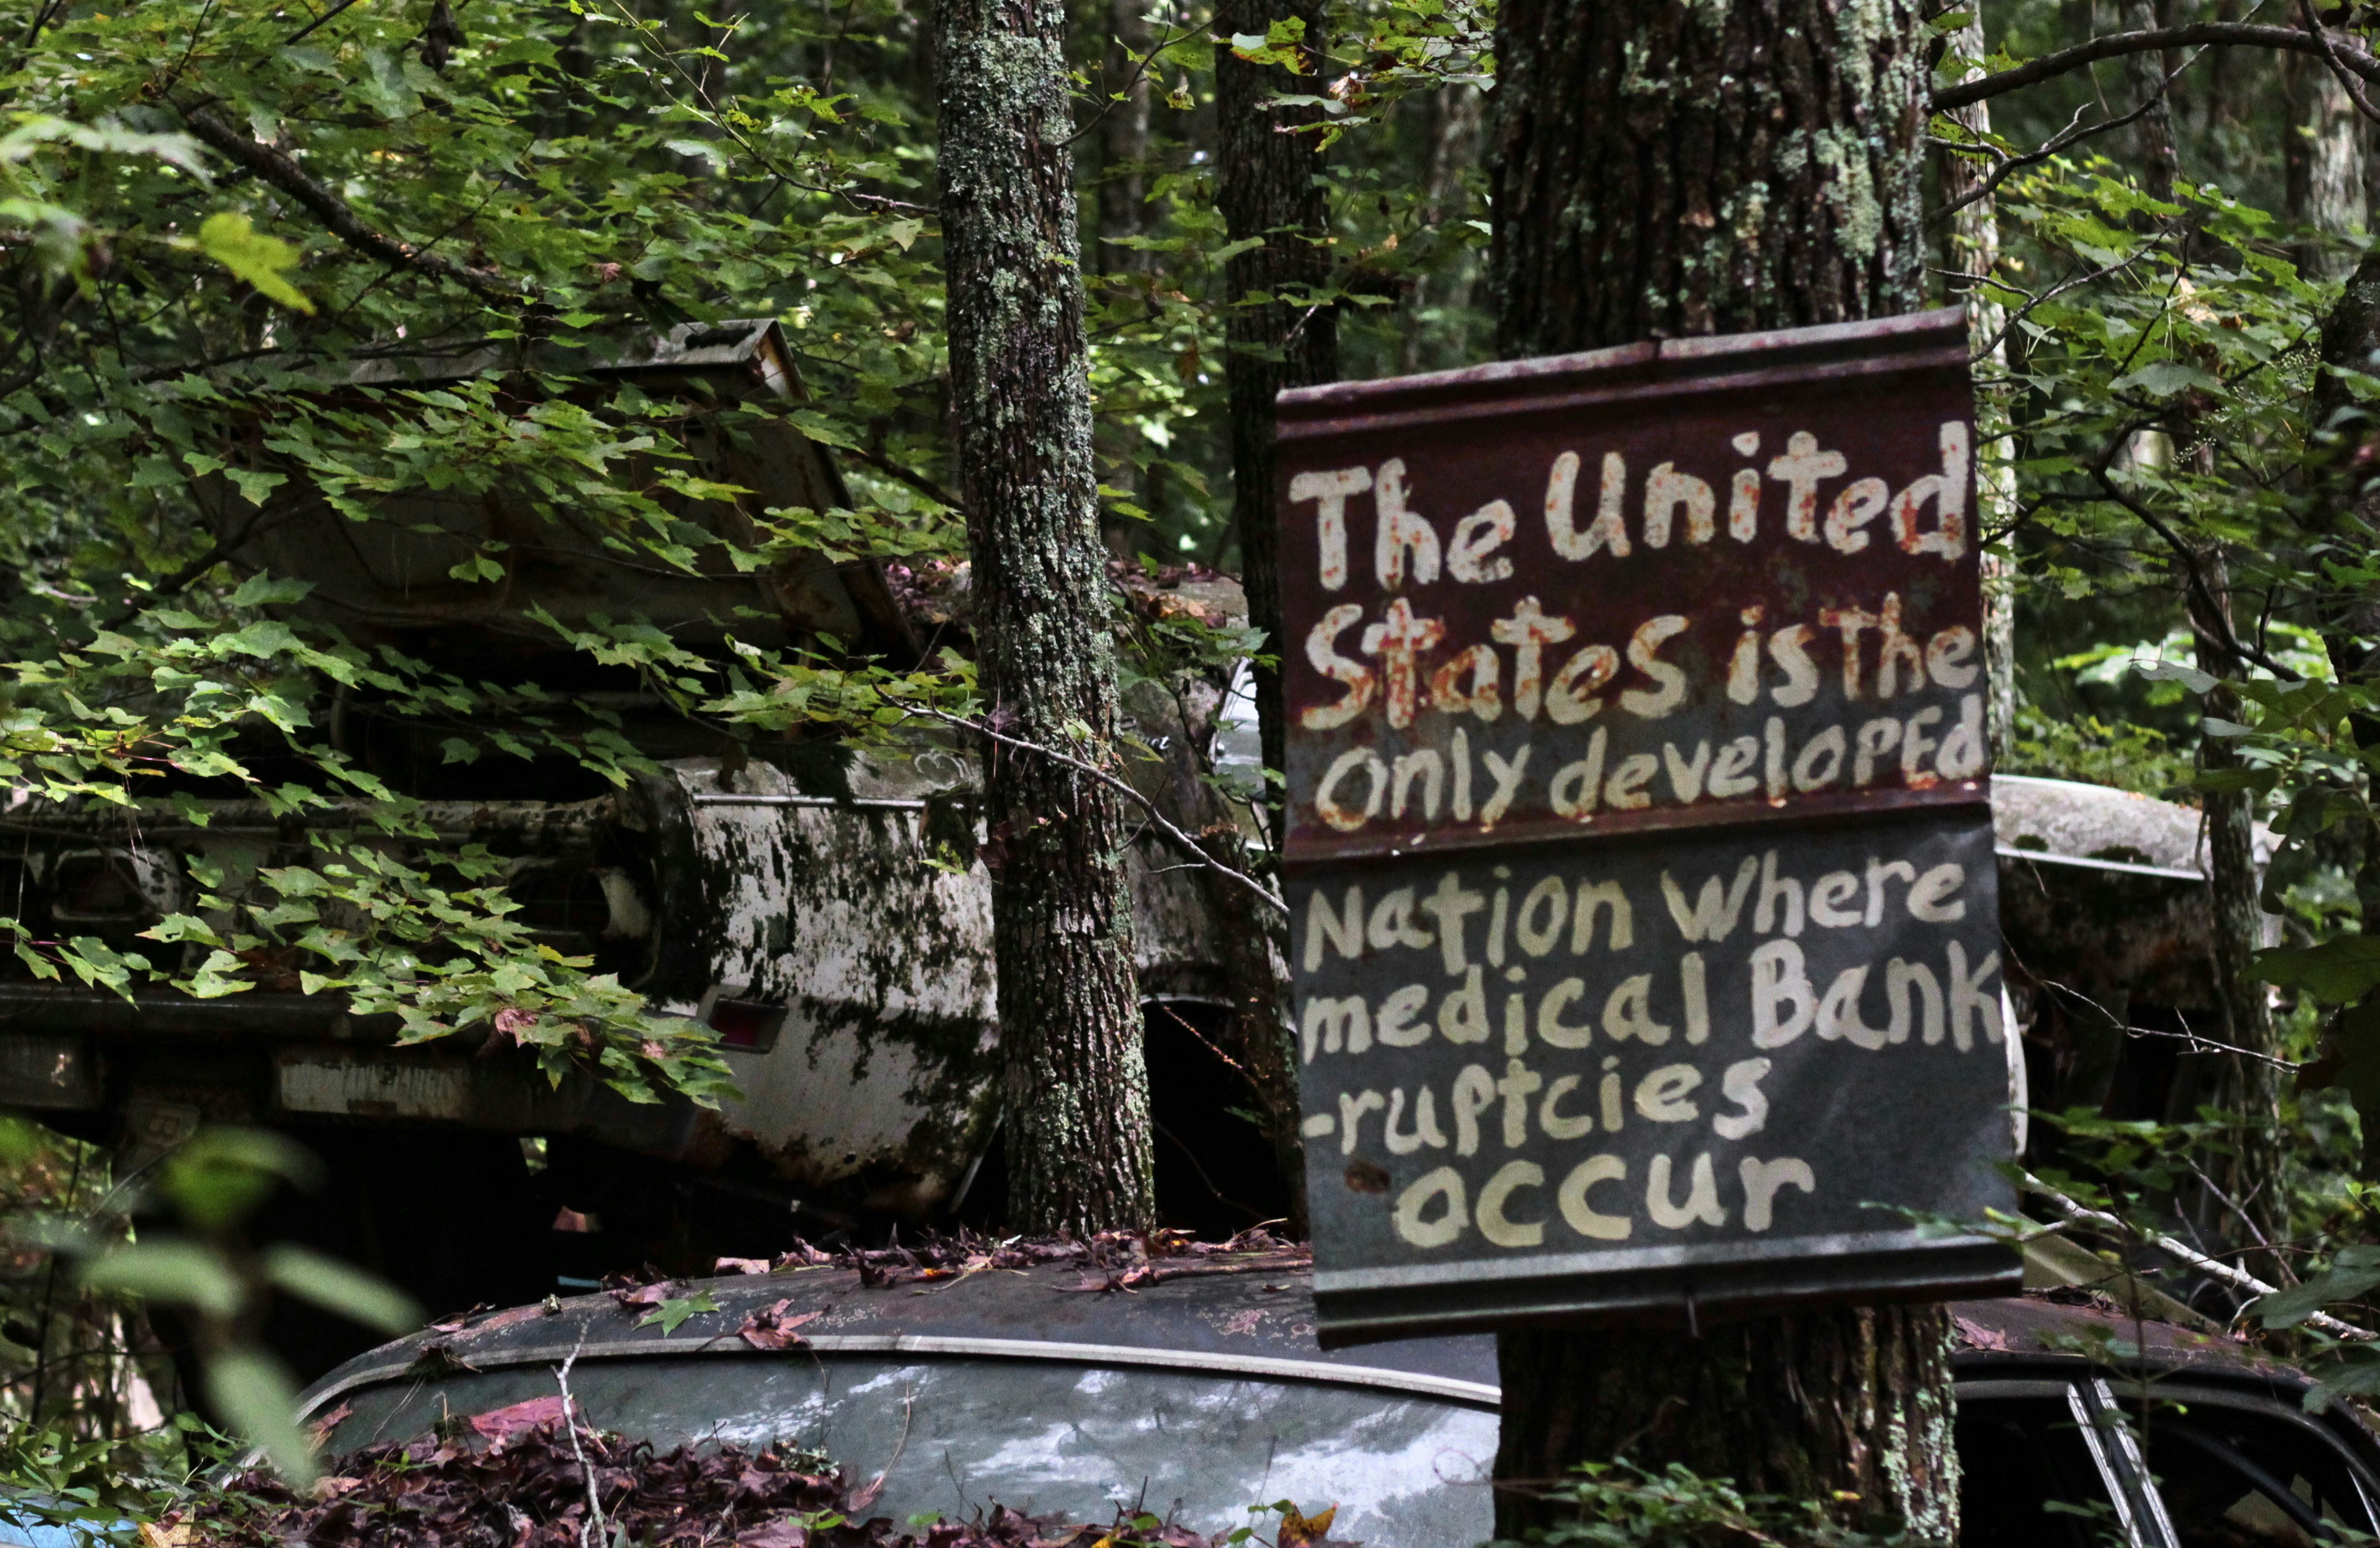 The United
States is The
only developEd
Nation Where
medical Bank
-ruptcies
occur